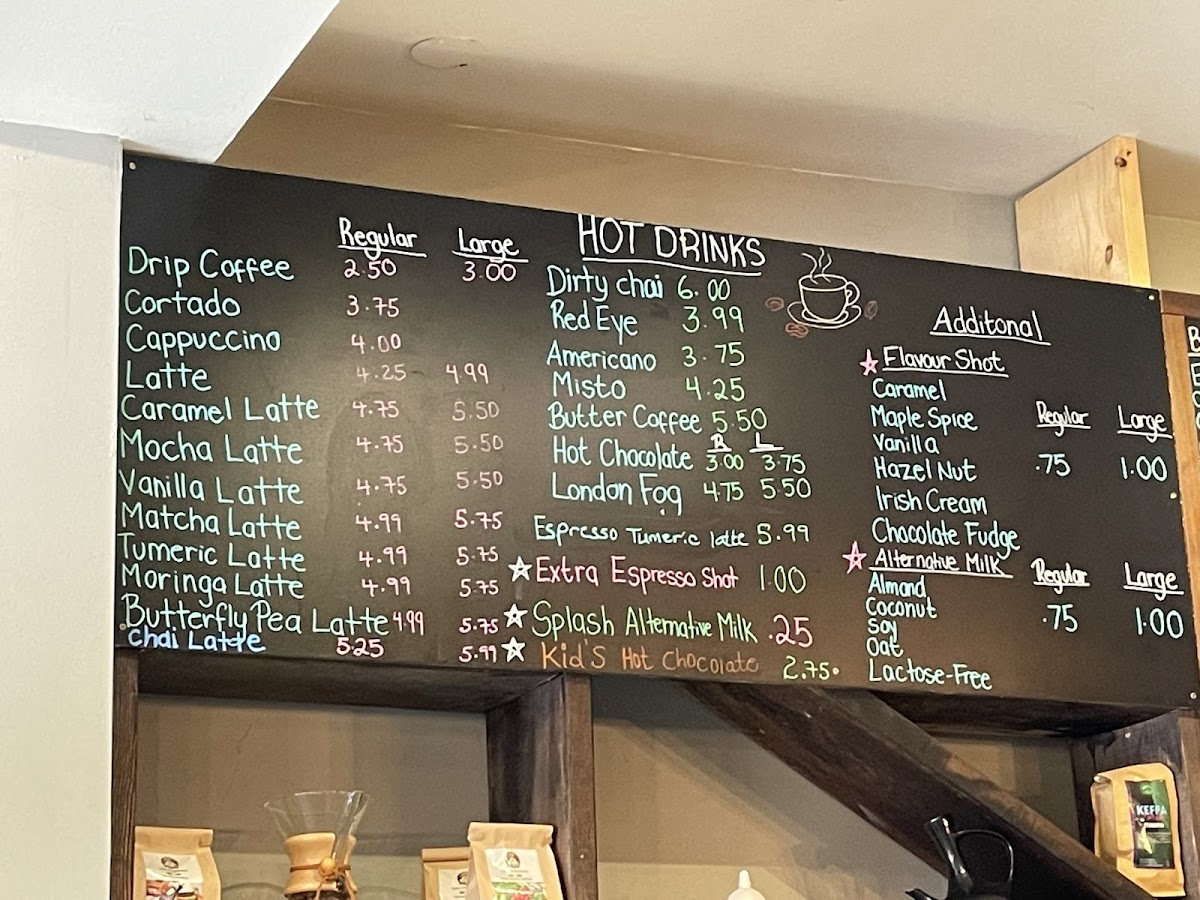 HOT DRINKS
Regular Large
Drip Coffee 2.50 3.00
Cortado 3.75
Cappuccino 4.00
Latte 4.25 4.99
Caramel Latte 4.75 5.50
Mocha Latte 4.75 5.50
Vanilla Latte 4.75 5.50
Matcha Latte 4.99 5.75
Tumeric Latte 4.99 5.75
Moringa Latte 4.99 5.75
Butterfly Pea Latte 4.99 5.75
Chai Latte 5.25 5.99
Dirty chai 6.00
Red Eye 3.99
Americano 3.75
Misto 4.25
Butter Coffee 5.50
R L
Hot Chocolate 3.00 3.75
London Fog 4.75 5.50
Espresso Tumeric latte 5.99
Extra Espresso Shot 1.00
Splash Alternative Milk .25
Kid's Hot Chocolate 2.75
Additonal
Flavour Shot
Caramel
Maple Spice Regular Large
Vanilla
Hazel Nut .75 1.00
Irish Cream
Chocolate Fudge
Alternative Milk Regular Large
Almand
Coconut .75 1.00
Soy
Oat
Lactose-Free
KEFFA